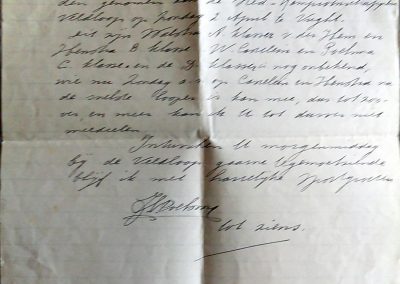 den genomen aan de Ned. Kampioenschappen
Veldloop op Zondag 2 April te Vught.
dit zijn Walstra A. klasse v. der Hem en
Heenstra B klasse W. Canellen en Boelsma
C klasse en de D. klasse nog onbekend,
wie nu Zondag a.s. op Canellen en Heenstra na
de snelste loopes is kan mee, dus tot zoo-
ver, en meer kan ik U tot dusver niet
meedeelen.
Intusschen U morgenmiddag
bij de Veldloop gaarne tegemoetziende
blijf ik met hartelijke Sportgroeten
tot ziens.